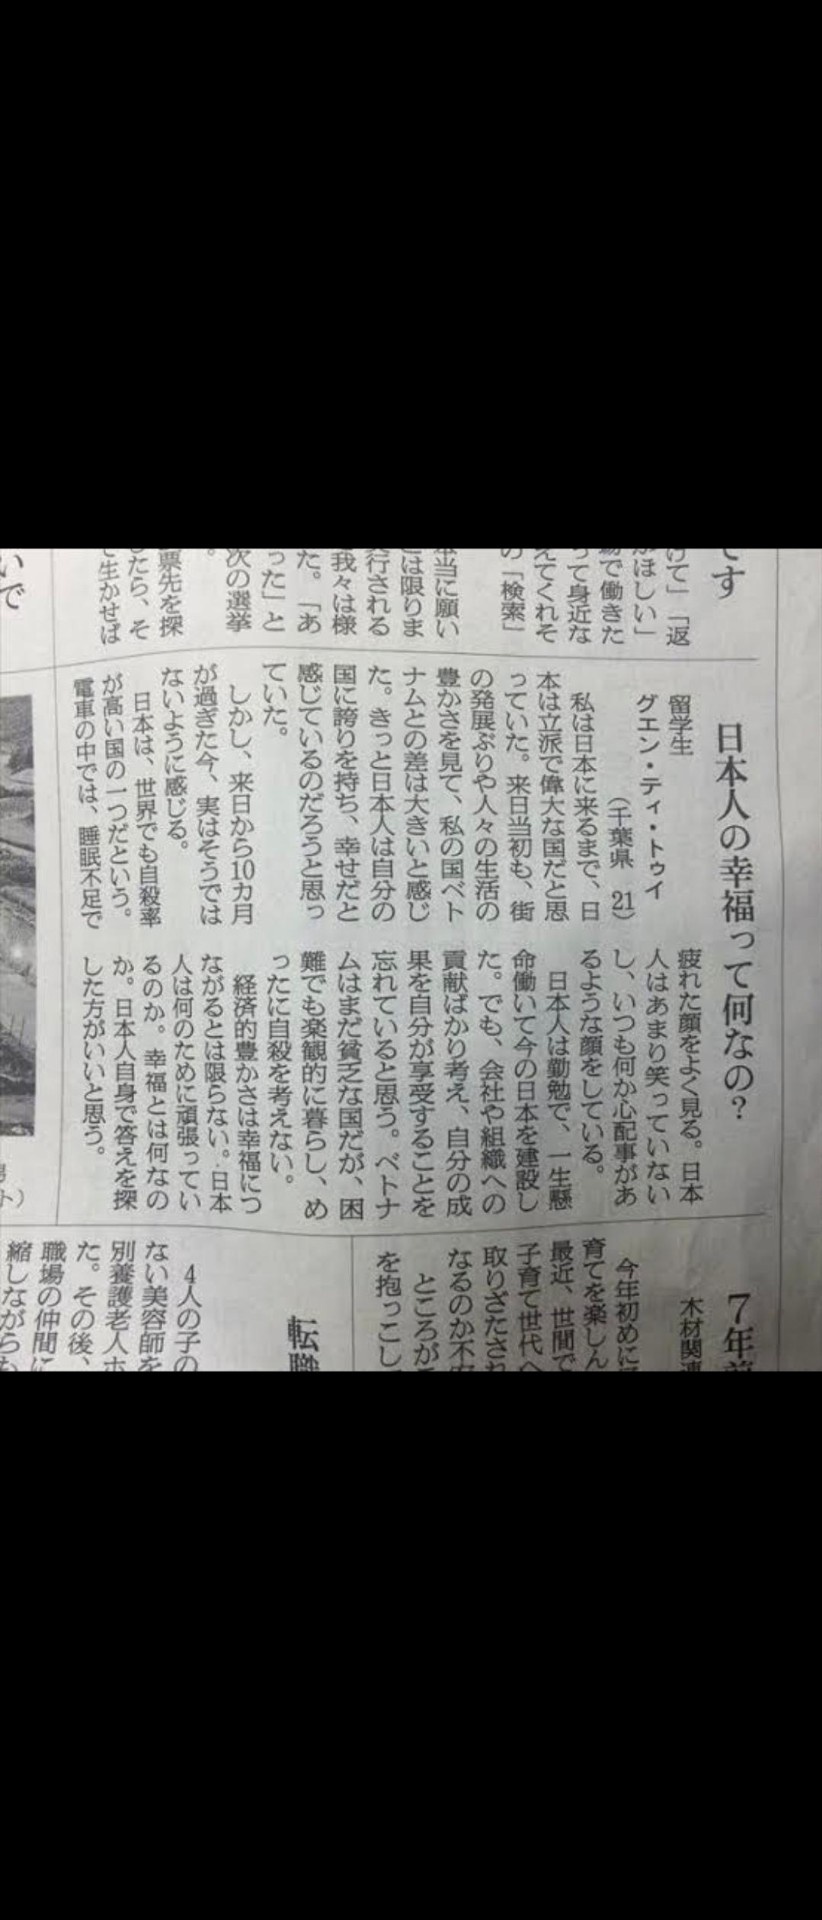 です
けて」「返
がほしい」
場で働きた
って身近な
えてくれそ
の「検索」
本当に願い
とは限りま
実行される
我々は様
た。「あ
った」と
次の選挙
。
票先を探
したら、そ
て生かせば
いで
日本人の幸福って何なの？
留学生
グエン・ティ・トゥイ
（千葉県　21）
私は日本に来るまで、日
本は立派で偉大な国だと思
っていた。来日当初も、街
の発展ぶりや人々の生活の
豊かさを見て、私の国ベト
ナムとの差は大きいと感じ
た。きっと日本人は自分の
国に誇りを持ち、幸せだと
感じているのだろうと思っ
ていた。
しかし、来日から10カ月
が過ぎた今、実はそうでは
ないように感じる。
日本は、世界でも自殺率
が高い国の一つだという。
電車の中では、睡眠不足で
疲れた顔をよく見る。日本
人はあまり笑っていない
し、いつも何か心配事があ
るような顔をしている。
日本人は勤勉で、一生懸
命働いて今の日本を建設し
た。でも、会社や組織への
貢献ばかり考え、自分の成
果を自分が享受することを
忘れていると思う。ベトナ
ムはまだ貧乏な国だが、困
難でも楽観的に暮らし、め
ったに自殺を考えない。
経済的豊かさは幸福につ
ながるとは限らない。日本
人は何のために頑張ってい
るのか。幸福とは何なの
か。日本人自身で答えを探
した方がいいと思う。
7年前
木材関連
今年初めに
育てを楽しん
最近、世間で
子育て世代へ
取りざたされ
なるのか不安
ところが
を抱っこし
転職
4人の子の
ない美容師を
別養護老人ホ
た。その後、
職場の仲間に
縮しながらも